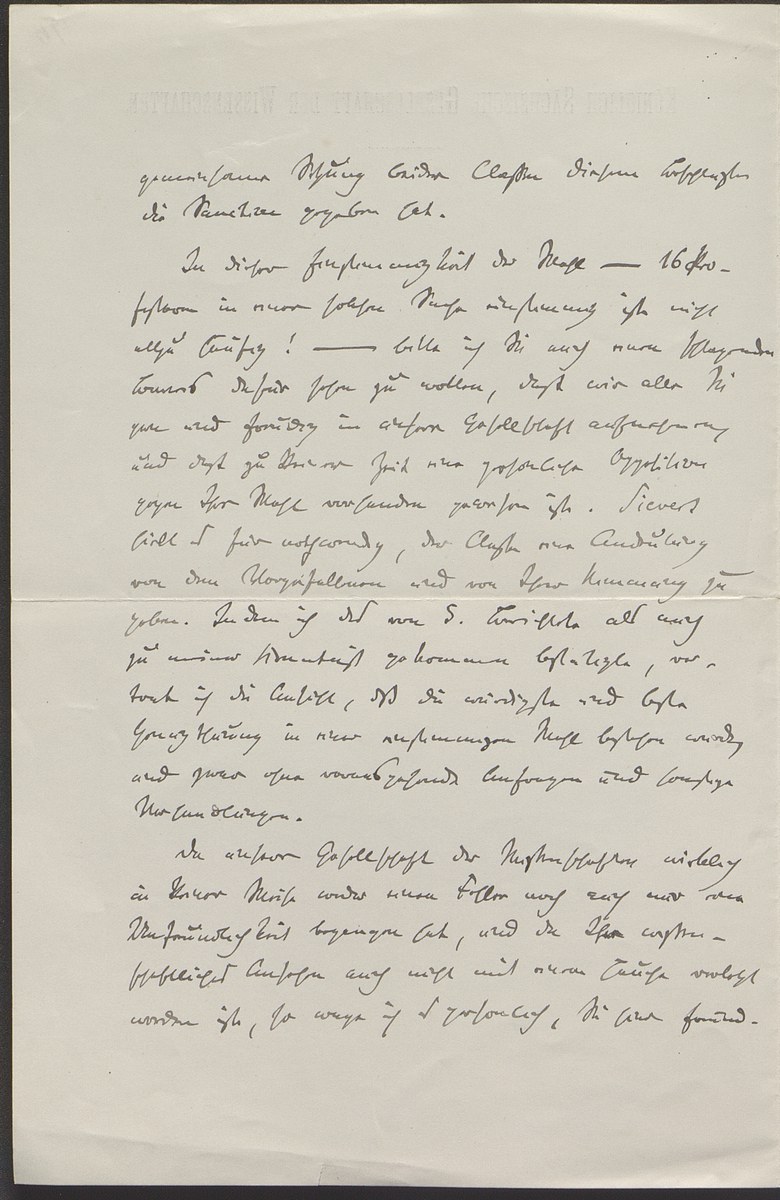 gemeinsame Sitzung beider Classen diesem Vorschlage
die Sanction gegeben hat.
In dieser Einstimmigkeit der Wahl — 16 Pro-
fessoren in einer solchen Sache einstimmig ist nicht
allzu häufig! — bitte ich Sie auch einen schlagenden
Beweis dafür sehen zu wollen, daß wir alle Sie
gern und freudig in unsere Gesellschaft aufnehmen,
und daß zu keiner Zeit eine persönliche Opposition
gegen Ihre Wahl vorhanden gewesen ist. Sievers
hielt es für nothwendig, der Classe eine Andeutung
von dem Vorgefallenen und von Ihrer Stimmung zu
geben. Indem ich das von S. Berichtete als auch
zu meiner Kenntniß gekommen bestätigte, ver-
trat ich die Ansicht, daß die würdigste und beste
Genugthuung in einer einstimmigen Wahl bestehen würde,
und zwar ohne vorausgehende Anfragen und sonstige
Verhandlungen.
Da unsere Gesellschaft der Wissenschaften wirklich
in keiner Weise weder einen Fehler noch auch nur eine
Unfreundlichkeit begangen hat, und da Ihr wissen-
schaftliches Ansehen auch nicht mit einem Hauche verletzt
worden ist, so wage ich es persönlich, Sie hier freund-